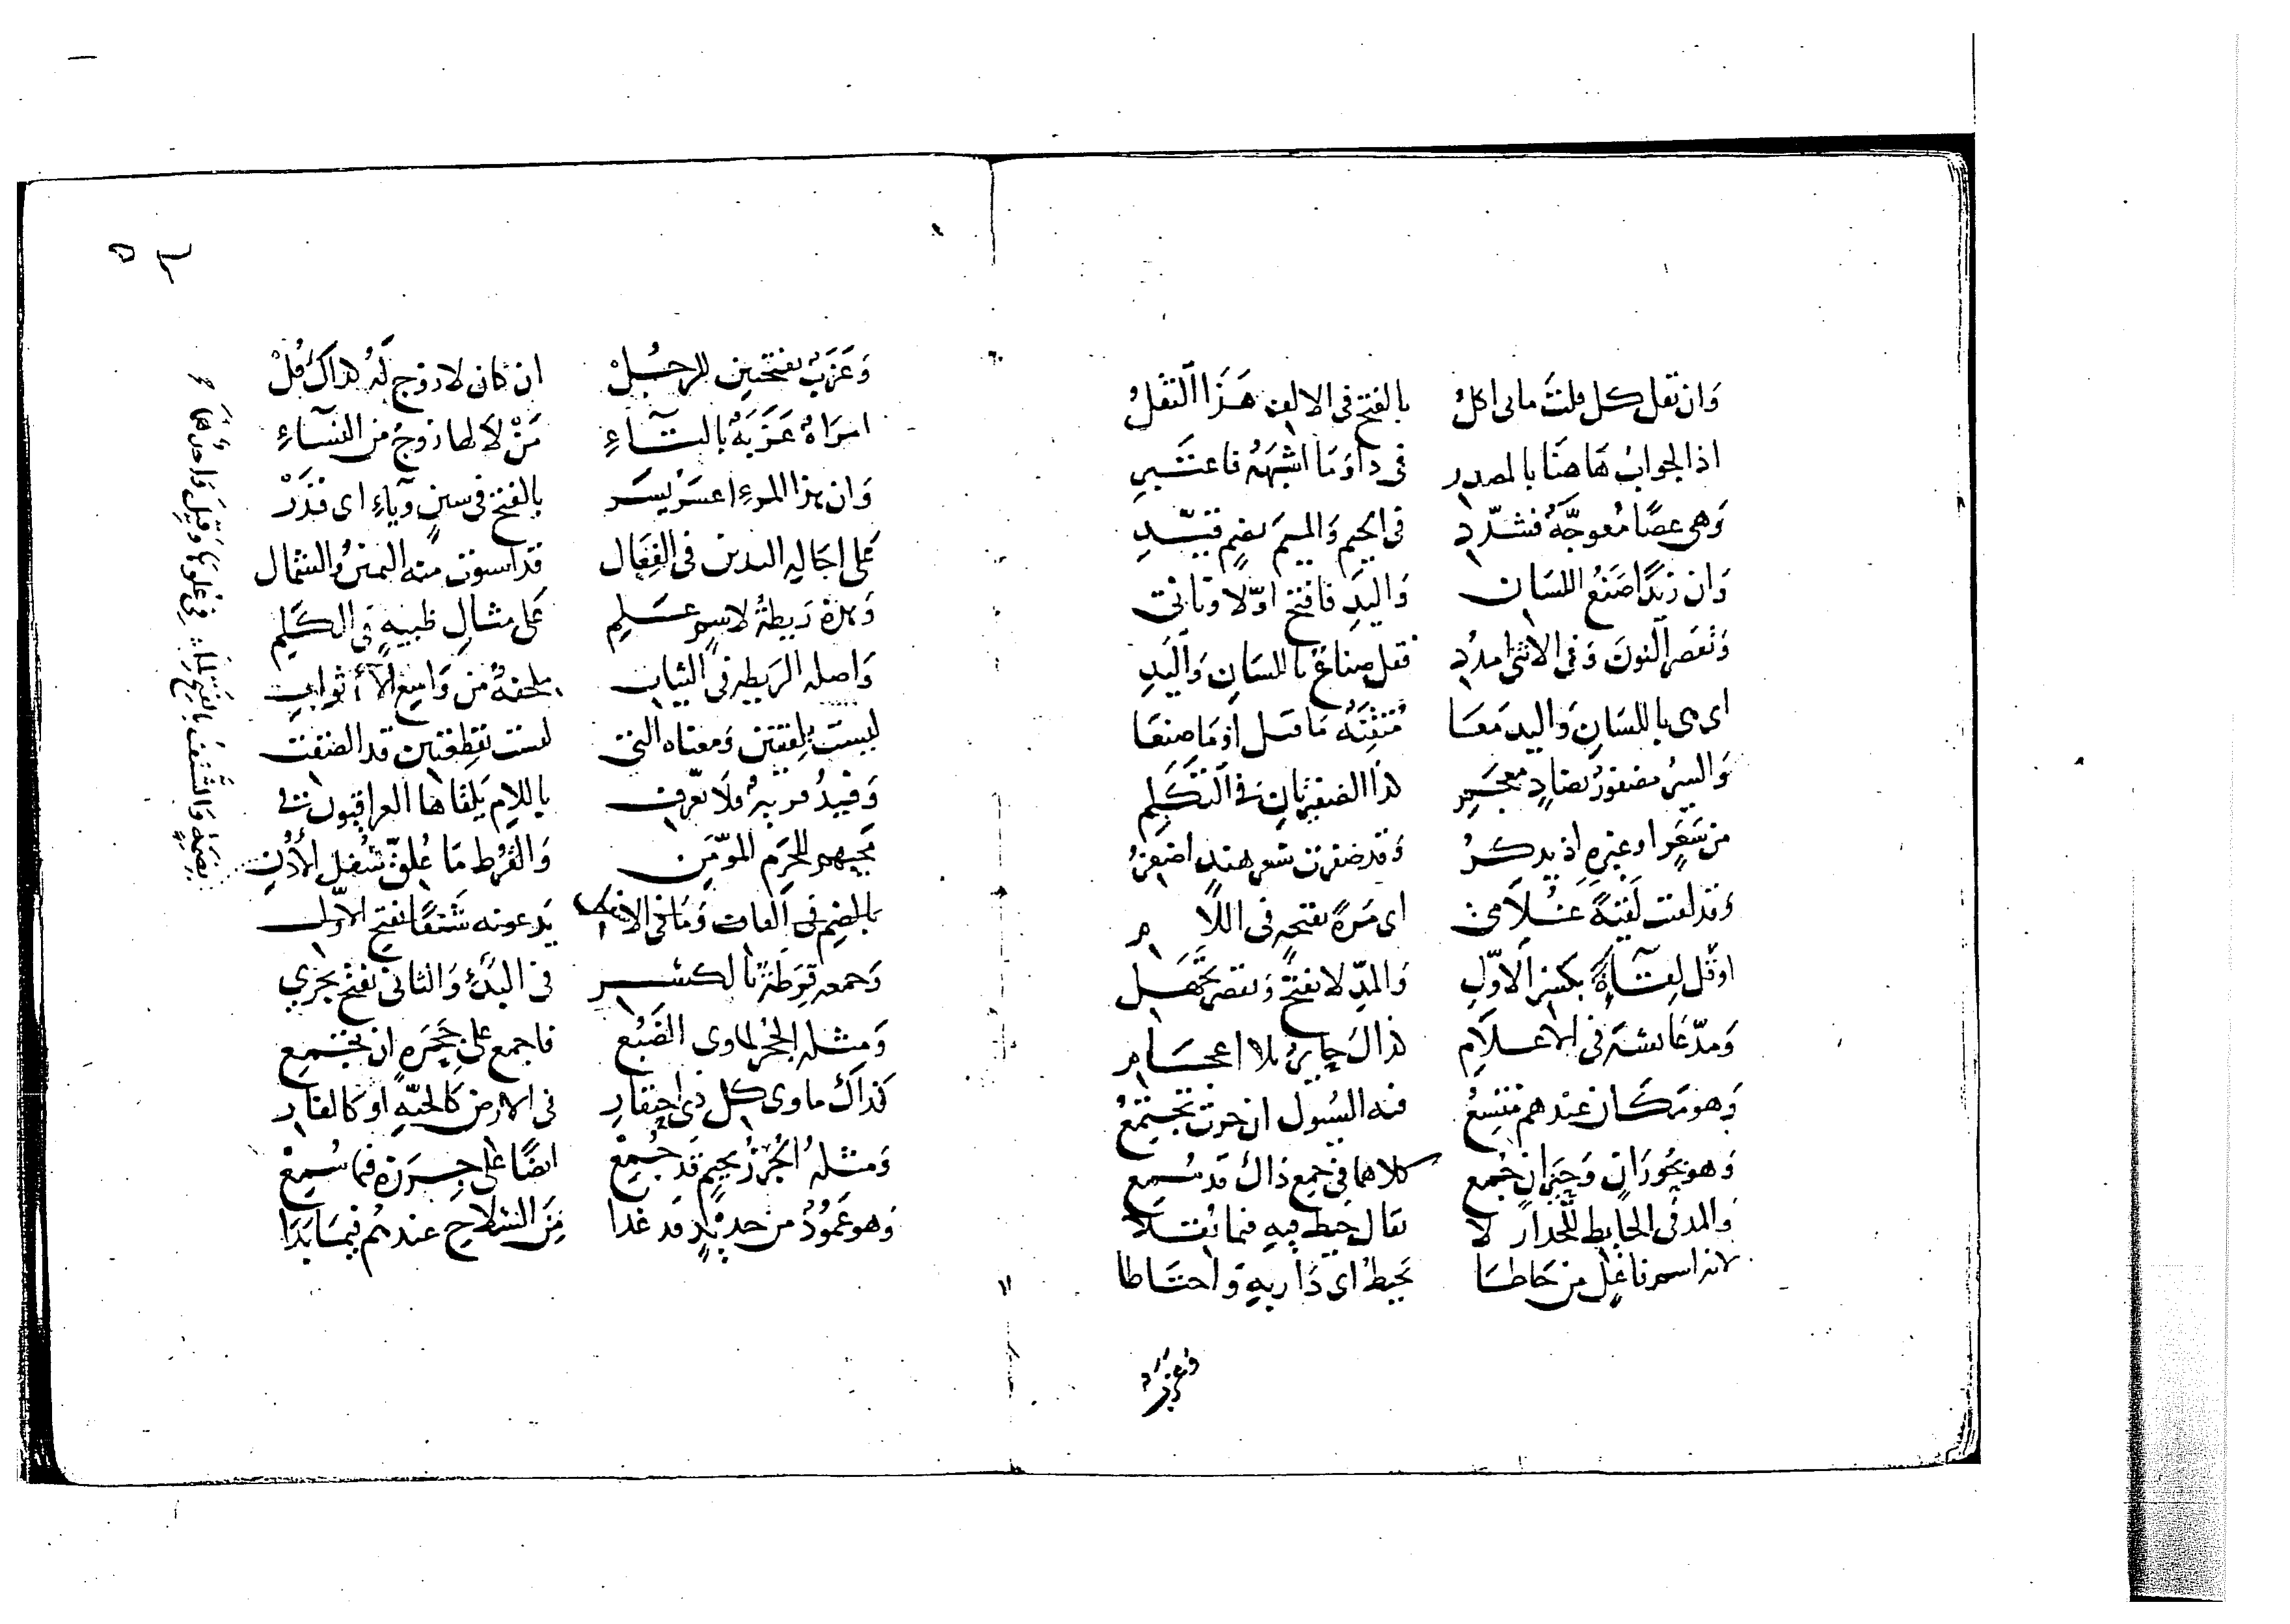 وَان تقل كل قلتَ مالى اكلُ بالفتح فى الالف هَذَا النَّقلُ
اذ الجوابُ هَاهنَا بالمصدر فى ذا وَمَا اشبَهَهُ فاعتَبِرِ
وَهى عصًا مُعوجَّةٌ فشدِّدِ فى الجيم وَالميمَ بضمٍ قيِّدِ
وَان زيدًا صَنَعُ اللسَان وَاليَدِ فافتح اوّلًا وثانى
وَتَقصُر النونَ وَفى الانثى امدُدِ فقل صناعٌ باللسَانِ وَاليَدِ
اى هى باللسَانِ وَاليدِ مَعَا مُتقِنَةٌ مَا قيل اوْ مَا صنعَا
وَالسيرُ مضفورٌ بضادٍ معجَمِ كذا الضفيرتان فى التكلّمِ
من شَعَرٍ اوغيرِهِ اذ يذكرُ وَقد ضفرت شعر هندٍ اضفِرُ
وَقد لقيت لَقيَةً غُلامى اى مَرةً بفتحهِ فى اللَّام
اوقل لِقَآءَةً بكسْرِ الاوّلِ وَالمدِّ لا بفتحٍ وَقصرٍ تجهَل
وَمدّ عَائشة فى الاعلَامِ كذاكَ حَائرٌ بلا اعجَام
وَهو مَكَان عندهم مُتَّسِعُ فيه السُّيول ان جرت تجتَمِعُ
وَهو بحُورَانٍ وَحِيرَانٍ جُمع كلاهما فى جمع ذاك قد سُمِع
وَالمد فى الحَائط للجدار لا تقال حَيط فيهِ فيما نُقلَا
لانه اسم فاعلٍ من حَاطَا يحيطُ اى دَار بهِ وَاحتَاطا
وعزب
وَعَزَبٌ بفتحتَين للرجُلْ ان كان لا زوج لَهُ كذاك قُلْ
امرَاةٌ عَزَبَةٌ بالتَّآءِ مَنْ لَا لها زوجٌ من النسَآءِ
وَان هذا المرءِ اعسَرٌ يسَر بالفتح فى سينٍ وَيَاءٍ اى قَدَرْ
عَلى اجَالهِ اليدين فى الفِعَال قد استوت منه اليمينُ وَالشمال
وَهذه رَيطةٌ لاسمٍ عَلمِ عَلى مثالِ ظبيةٍ فى الكَلِمِ
وَاصله الريطه فى الثيَاب ملحفةٌ من وَاسِع الاثوابِ
ليست بلفقَتين وَمعناه التى ليست بقطعتين قد الضفت
وَالقُرط مَا عُلقَ سُفل الأذُنِ
يَدعونه شَنفًا بفتح الاوّل
وَجمعه قِرَطَةٌ بالكسْرِ فى البدْءِ وَالثانى بفتحٍ يجري
وَمثله الجُحْر لماوى الضَبُع فاجمع على جِحَرَةٍ ان تجمعِ
كذاكَ ماوى كل ذى احتقارِ فى الارض كَالحَيّةِ او كَالفَار
وَمثلهُ الجُرزُ بجيمٍ قد جُمِعْ ايضًا على جِرَزَة فيما سُمِعْ
وَهو عَمُودٌ من حديْدٍ قد غدا مِنَ السّلاحِ عندهُم فيمَا بَدَا